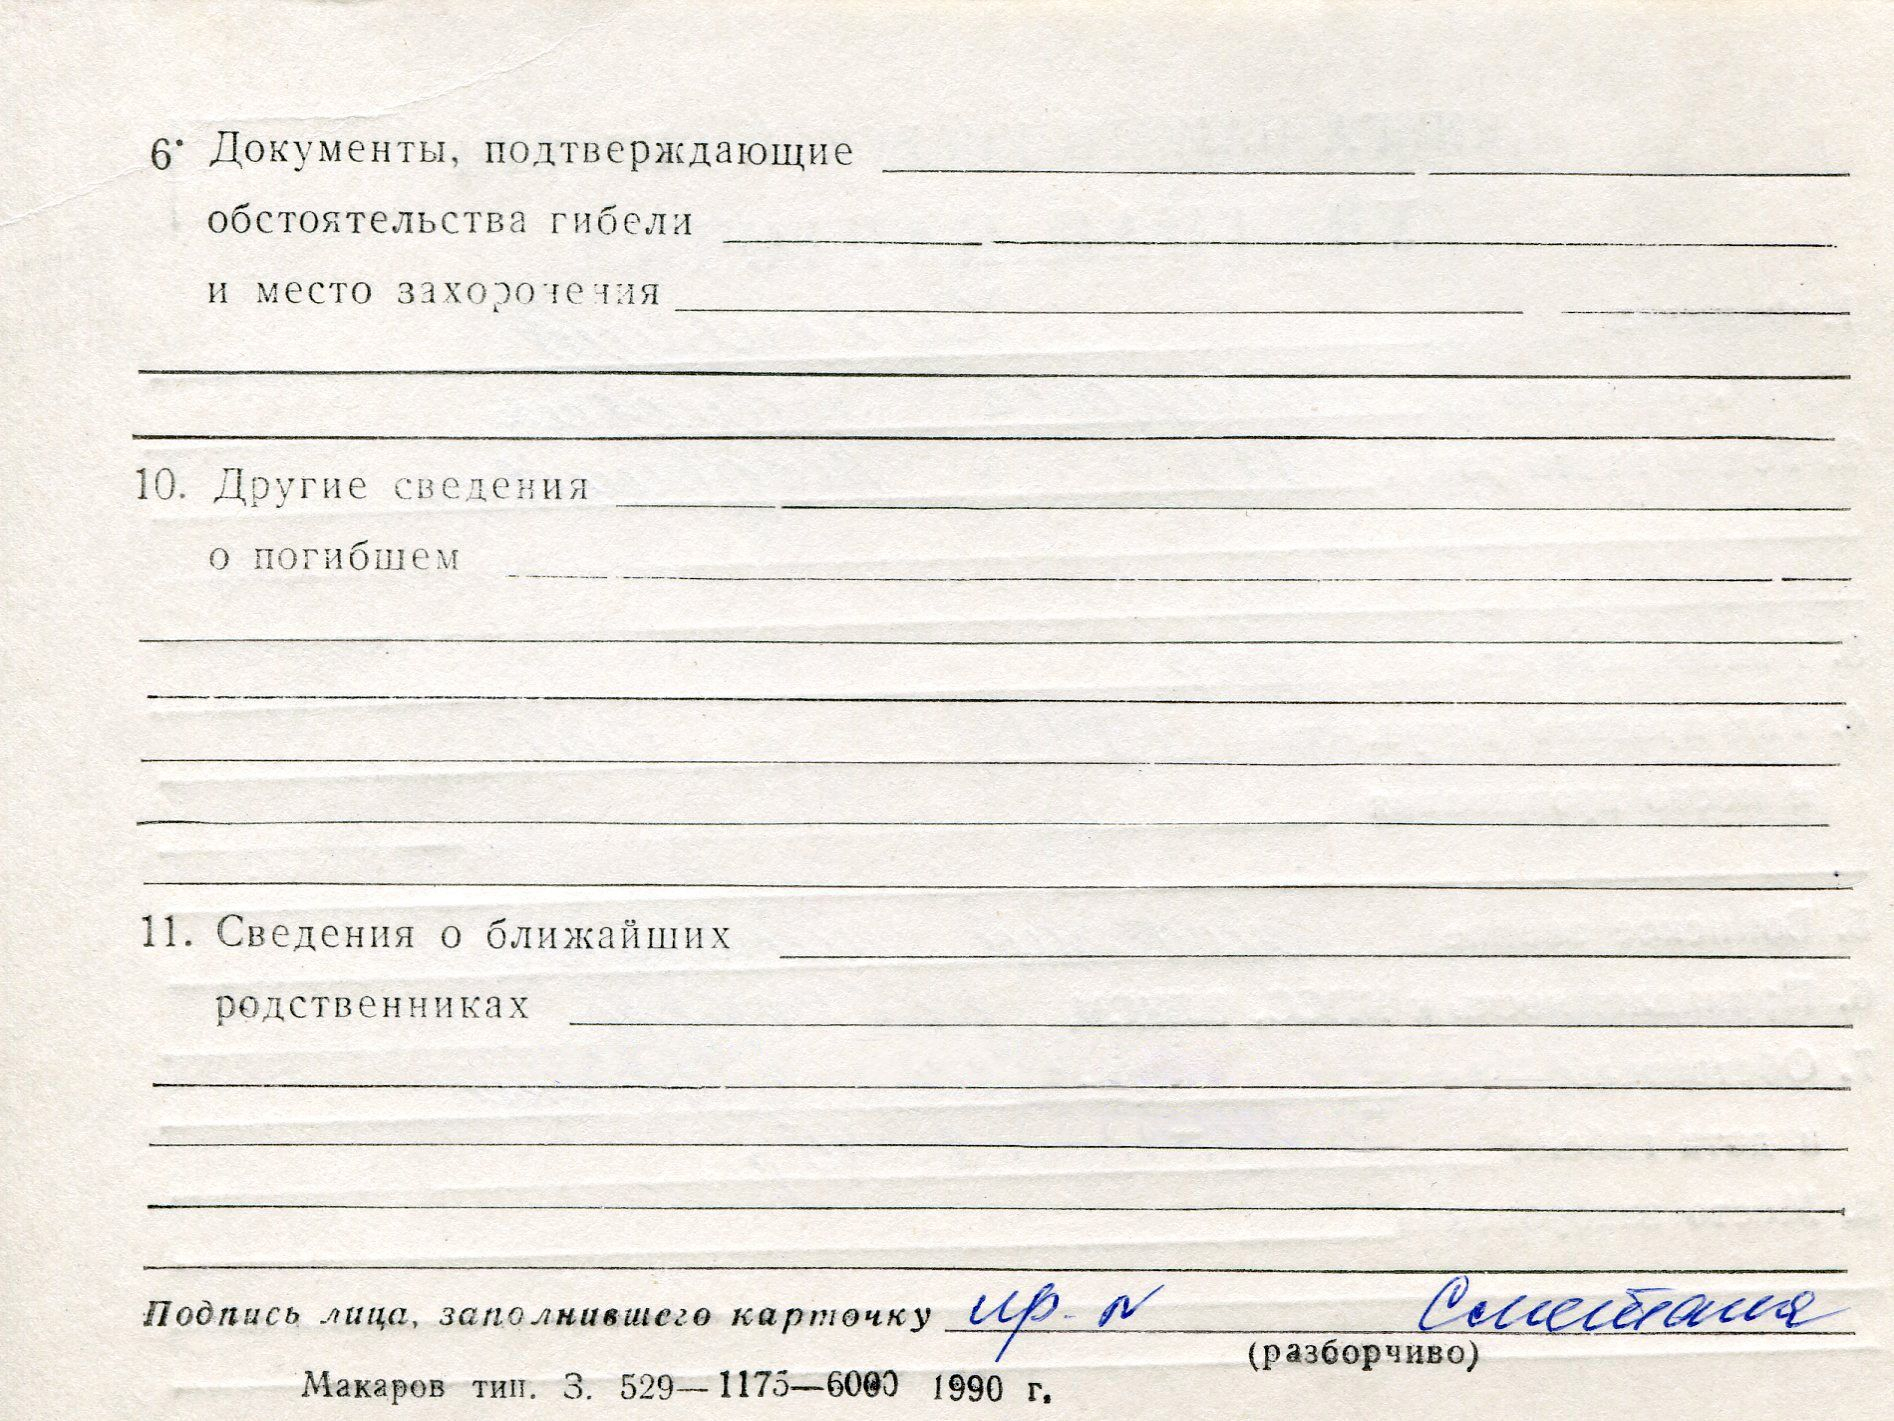 6. Документы, подтверждающие
обстоятельства гибели
и место захоронения
10. Другие сведения
о погибшем
11. Сведения о ближайших
родственниках
Подпись лица, заполнившего карточку пр-к Сметана
(разборчиво)
Макаров тип. З. 529—1175—6000 1990 г.